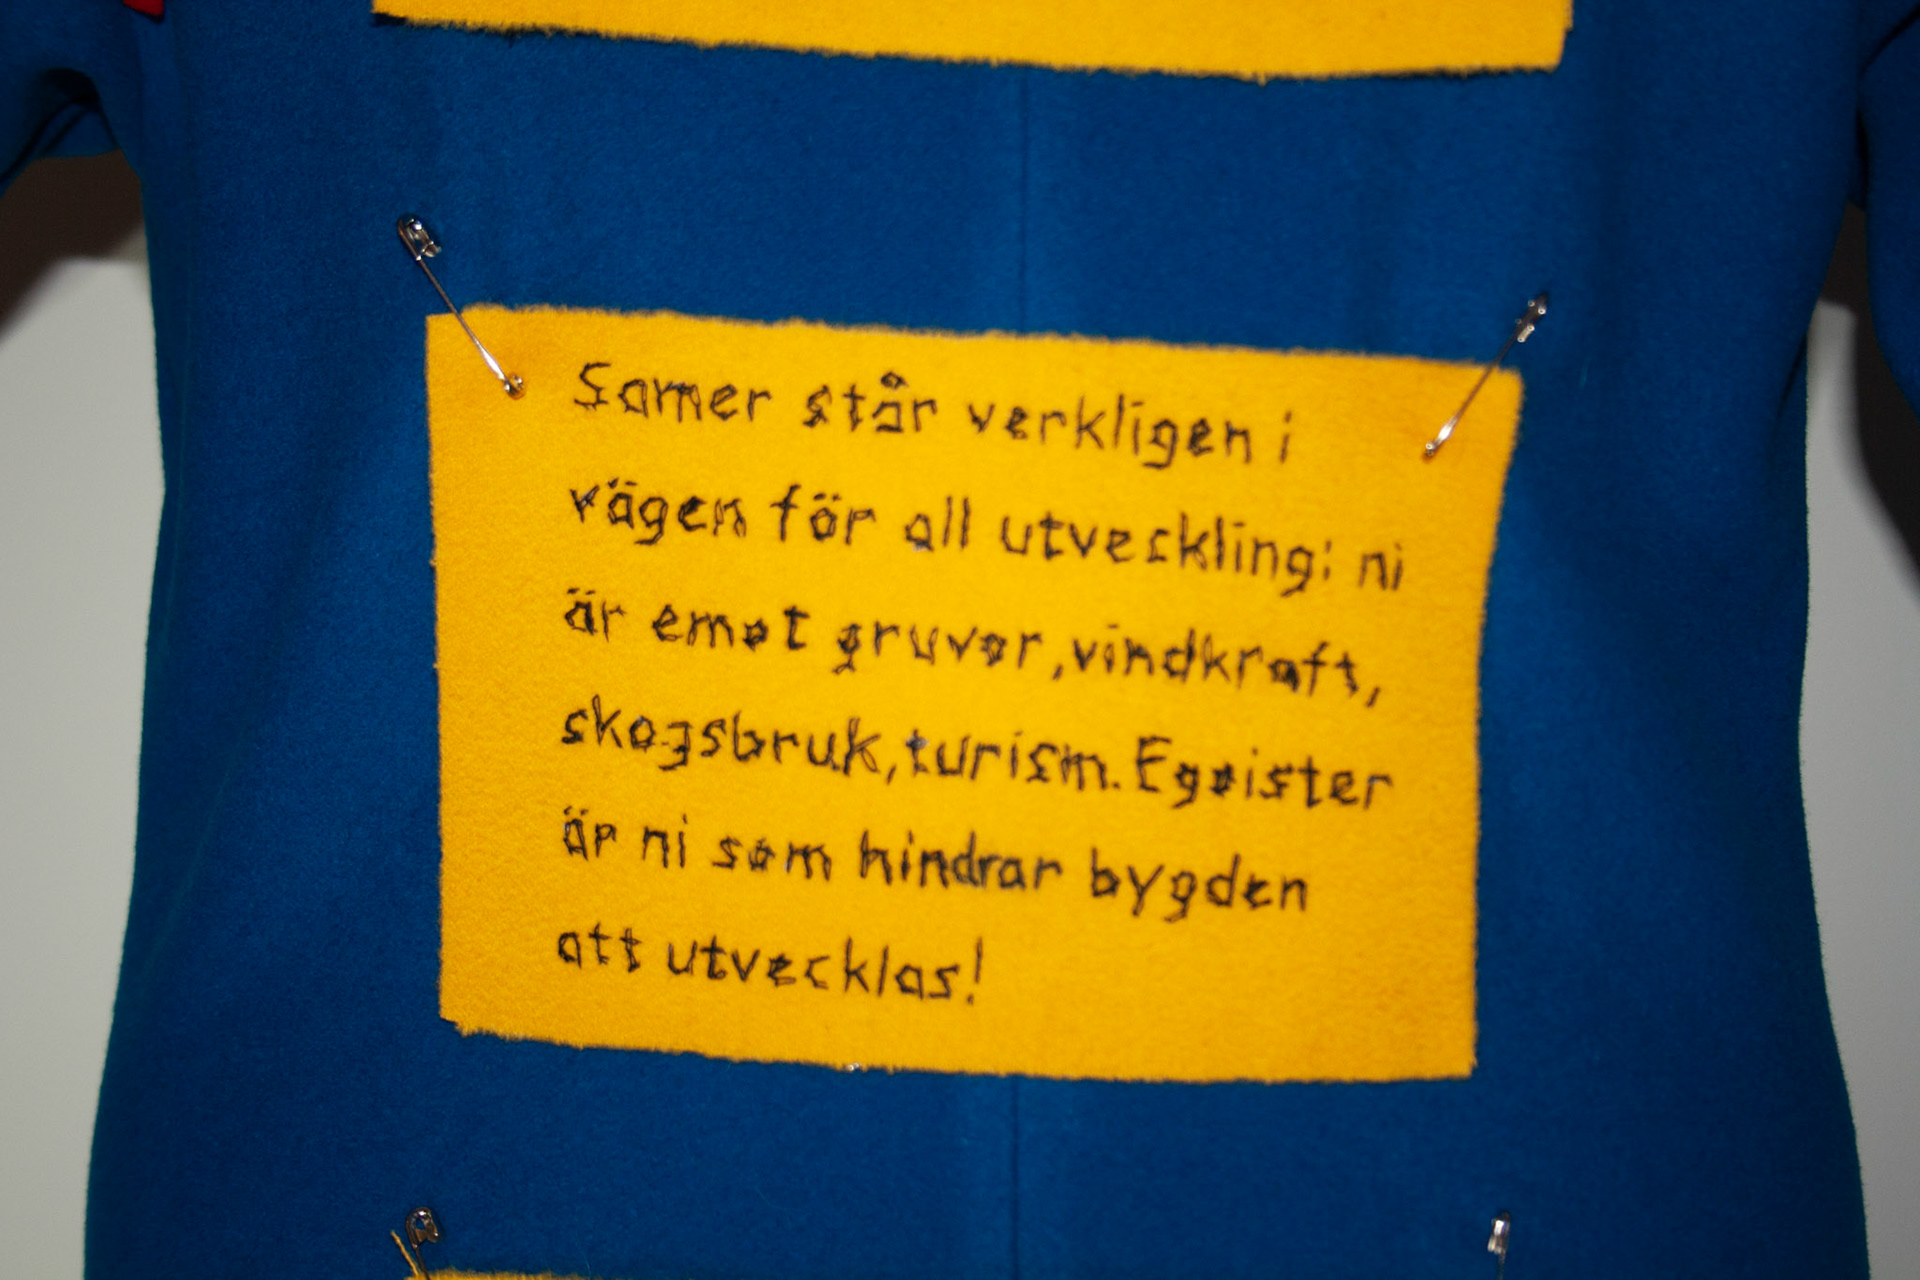 Samer står verkligen i
vägen för all utveckling: ni
är emot gruvor, vindkraft,
skogsbruk, turism. Egoister
är ni som hindrar bygden
att utvecklas!